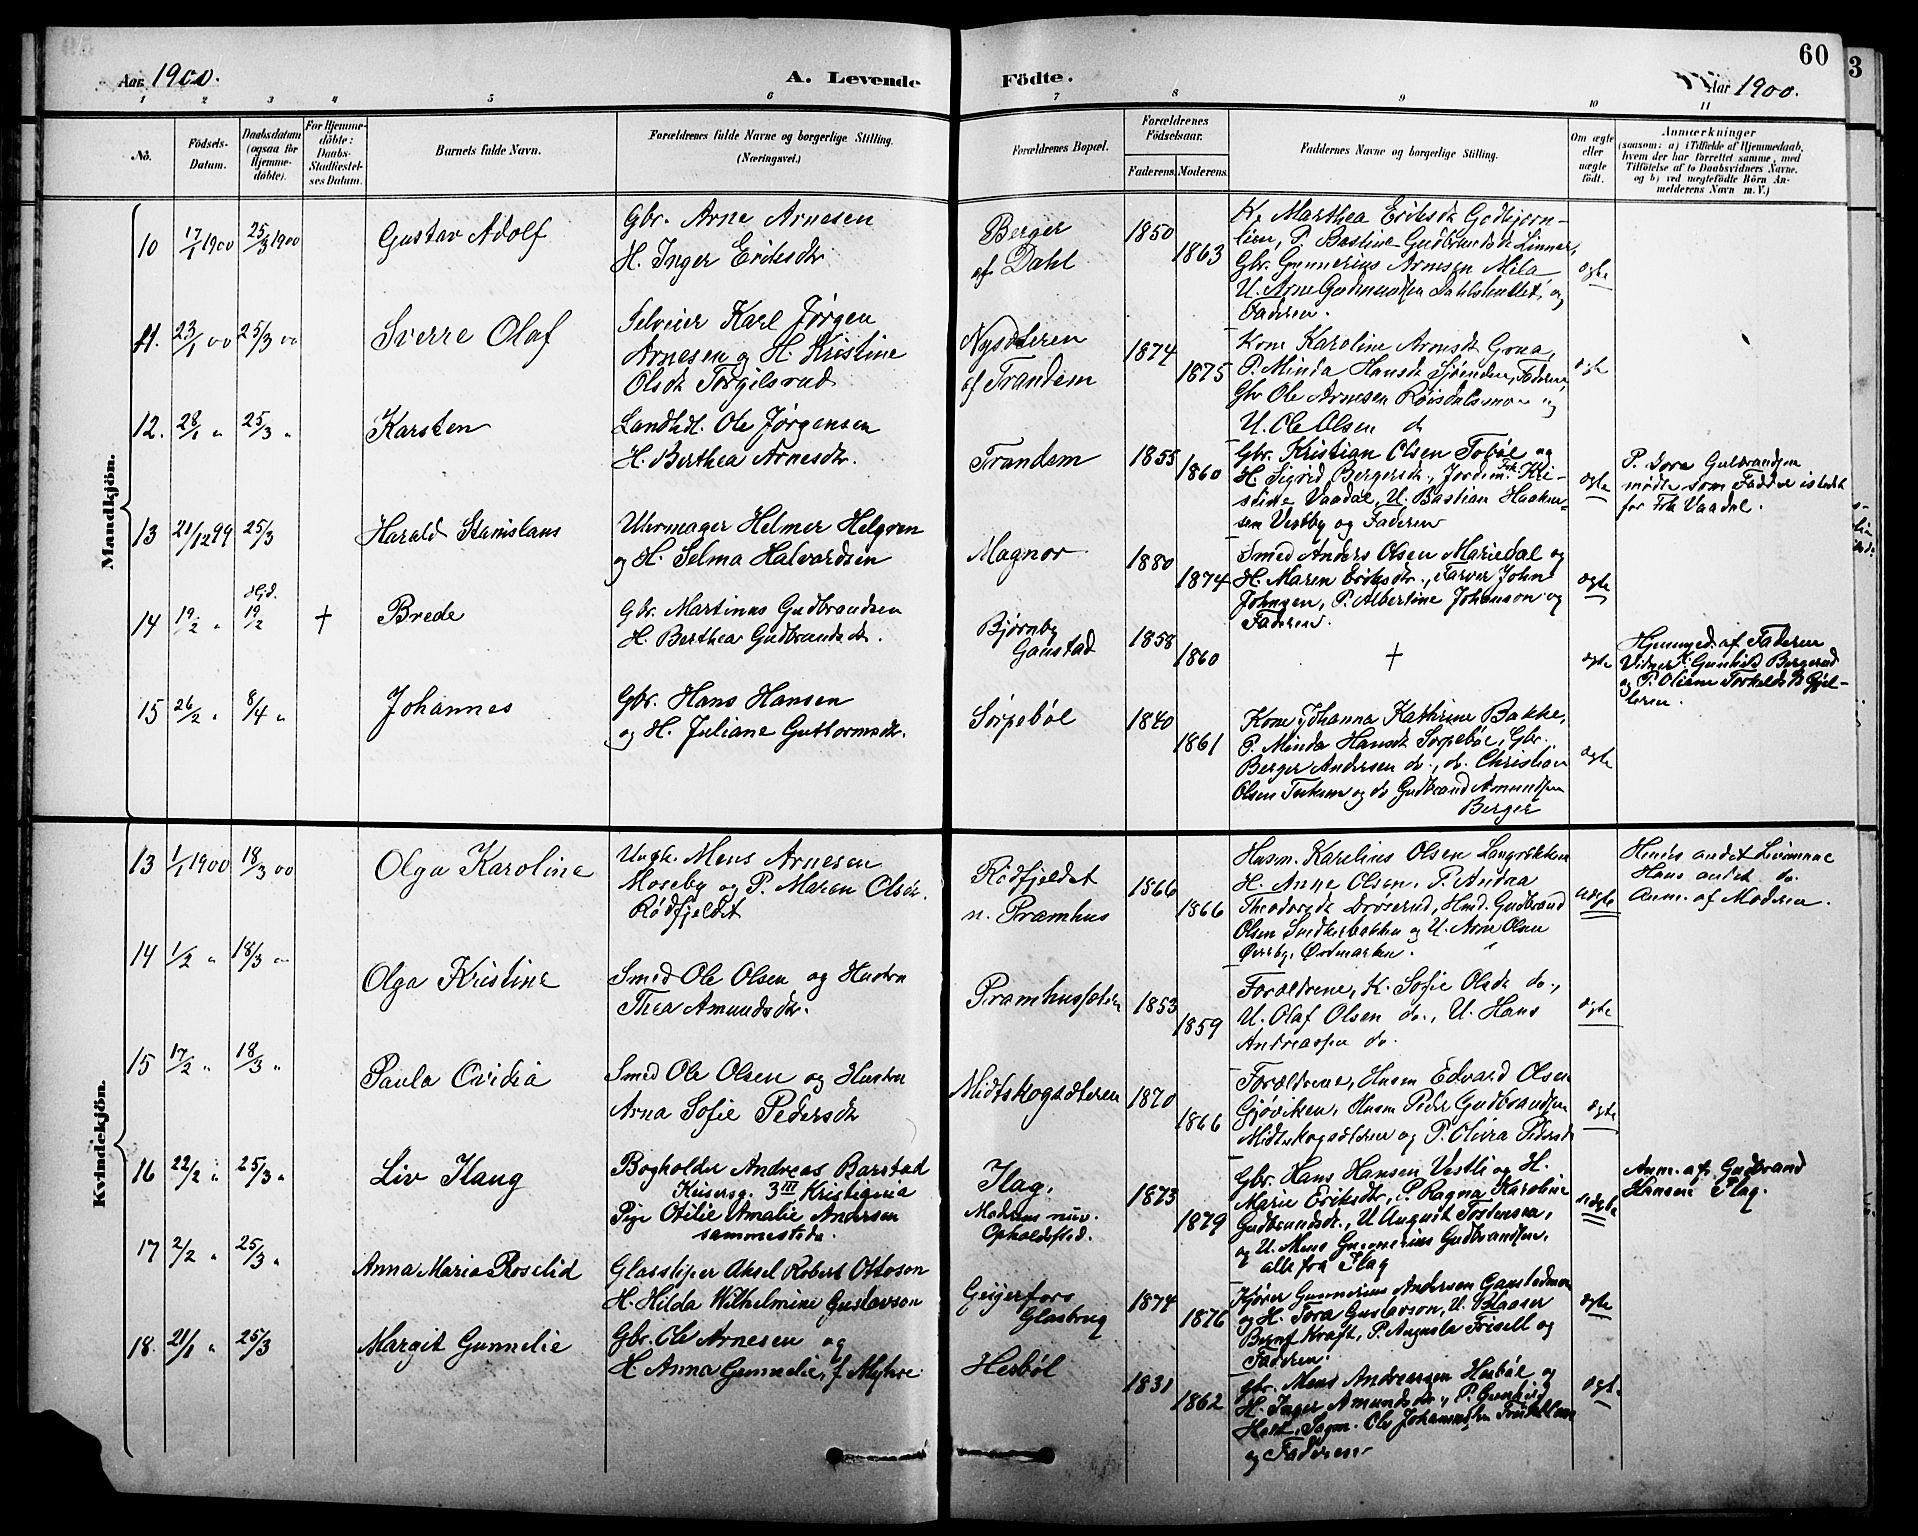 60
3
Aar 1900.
A. Levende
Födte.
Aar 1900.
1 2 3 4 5 6 7 8 9 10 11
No.
Födsels-
Datum.
Daabsdatum
(ogsaa for
Hjemme-
döbte).
For Hjemme-
döbte:
Daabs-
Stadfæstel-
ses Datum.
Barnets fulde Navn.
Forældrenes fulde Navne og borgerlige Stilling.
(Næringsvei.)
Forældrenes Bopæl.
Forældrenes
Födselsaar.
Faderens. Moderens.
Faddernes Navne og borgerlige Stilling.
Om ægte
eller
uægte
födt.
Anmærkninger
(saasom: a) i Tilfælde af Hjemmedaab,
hvem der har forrettet samme, med
Tilföielse af to Daabsvidners Navne,
og b) ved uægtefödte Börn An-
melderens Navn m. V.)
Mandkjön.
10
17/1 1900
25/3 1900
Gustav Adolf
Gbr. Arne Arnesen
H. Inger Eriksdtr
Berger
af Dahl
1850
1863
K. Marthea Eriksdt Godbjørn-
lien, P. Bastine Gudbrandsdt Linner,
Gbr. Gunnerius Arnesen Mila
U. Arne Dahlshullet, og
Faderen.
ægte
11.
23/1 00
25/3 00
Sverre Olaf
Selveier Karl Jørgen
Arnesen og H. Kristine
Olsdt Torgilsrud
Nysæteren
af Trandem
1874
1875
Kone Karoline Arnesdt Grua,
P. Minda Hansdt Sjøenden, Faderen,
Gbr Ole Arnesen Røisdalsmoen og
U. Ole Olsen do
ægte
12.
28/1 "
25/3 "
Karsten
Landhdl. Ole Jørgensen
H. Berthea Arnesdtr.
Trandem
1855
1860
Gbr. Kristian Olsen Tobøl og
H. Sigrid Bergersdt., Jordm. Frk. Kri-
stine Vaadal, U. Bastian Haaken-
sen Vestby og Faderen
ægte
P. Dora Gulbrandsen
mødte som Fadder istedet
for Frk Vaadal.
13
21/12 99
25/3
Harald Stanislaus
Uhrmager Helmer Helgren
og H. Selma Halvardsen
Magnor
1880
1874
Smed Anders Olsen Mariedal og
H. Maren Eriksdtr., Farver John
Johnsen, P. Albertine Johanson og
Faderen.
ægte
14
19/2 "
HGd.
19/2
+
Brede
Gbr. Martinus Gudbrandsen
H. Berthea Gudbrandsdr.
Bjørnby
Gaustad
1858
1860
+
ægte
Hjemmed. af Faderen
Vidner K. Gunhild Bergerud
og P. Oliane Torkildsdt Gjel-
leren.
15
26/2 "
8/4 "
Johannes
Gbr. Hans Hansen
og H. Juliane Guttormsdtr.
Sørpebøl
1840
1861
Kone Johanna Kathrine Bakke,
P. Minda Hansdt Sørpebøl, Gbr.
Berger Andersen do., do. Christian
Olsen og do Gudbrand Amundsen
Berger
ægte
Kvindekjön.
13
1/1 1900
18/3 00
Olga Karoline
Ungk. Mens Arnesen
Moseby og P. Maren Olsdr.
Rødfjeldet
Rødfjeldet
n. Pramhus
1866
1866
Husm. Karelius Olsen
H. Anne Olsen, P. Andrea
Theodorsdt Drøserud, Husm. Gudbrand
Olsen og U. Arne Olsen
Øiersby, Østmarken.
uægte
Hendes andet Leiermaal
Hans andet do.
Anm. af Moderen.
14
1/2 "
18/3 "
Olga Kristine
Smed Ole Olsen og Hustru
Thea Amundsdr.
Pramhussæteren
1853
1859
Forældrene, K. Sofie Olsdt do.,
U. Olaf Olsen do., U. Hans
Andreassen do.
ægte
15
17/2 "
18/3 "
Paula Ovidia
Smed Ole Olsen og Hustru
Arna Sofie Pedersdt
Midtskogsæteren
1870
1866
Forældrene, Husm Edvard Olsen
Gjøviken, Husm Peder Gudbrandsen
Midtskogsæteren og P. Olivia Pedersdt
ægte
16
22/2 "
25/3 "
Liv Ilaug
Bogholder Andreas Barstad
Keisersg. 3 III Kristiania
Pige Otilie Amalie Andersen
sammesteds.
Ilag,
Moderens nuv.
Opholdssted.
1873
1879
Gbr. Hans Hansen Vestli og H.
Marie Eriksdtr, P. Ragna Karoline
Gudbrandsdt., U August Torstensen,
og U. Mens Gunnerius Gudbrandsen,
alle fra Ilag
uægte
Anm. af Gudbrand
Hansen Ilag.
17
2/2 "
25/3 "
Anna Maria Roselid
Glassliper Aksel Robert Ottoson
H. Hilda Wilhelmine Gustavson
Geijerfors
Glasbrug
1874
1876
Kjører Gunnerius Andersen Gaustadmoen
og H. Tora Gustavson, U. Blaaser
Bernt Kraft, P. Augusta Frisell og
Faderen.
ægte
18.
21/1 "
25/3
Margit Gunnelie
Gbr. Ole Arnesen og
H Anna Gunnelie, f. Myhre
Hesbøl
1831
1862
Gbr. Mens Andreassen Hesbøl og
H. Inger Amundsdr., P. Gunhild
Ole Johannesen
og Faderen
ægte